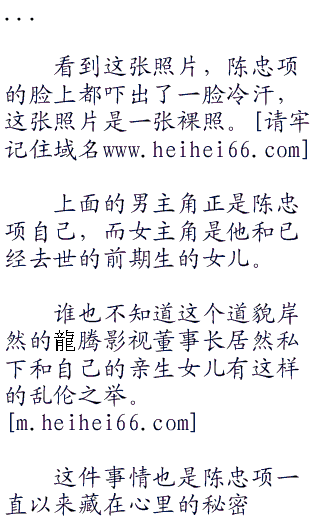 ...
看到这张照片，陈忠项
的脸上都吓出了一脸冷汗，
这张照片是一张裸照。[请牢
记住域名www.heihei66.com]
上面的男主角正是陈忠
项自己，而女主角是他和已
经去世的前期生的女儿。
谁也不知道这个道貌岸
然的龍腾影视董事长居然私
下和自己的亲生女儿有这样
的乱伦之举。
[m.heihei66.com]
这件事情也是陈忠项一
直以来藏在心里的秘密